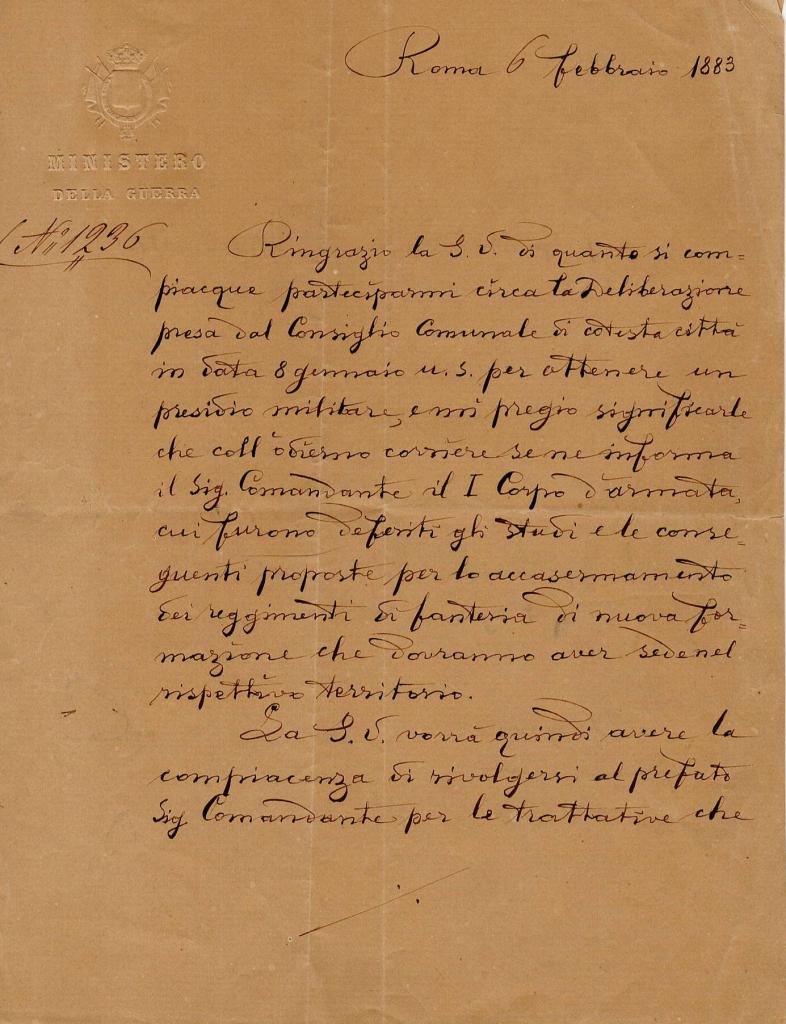 Roma 6 febbraio 1883
MINISTERO
DELLA GUERRA
N.º 1236
Ringrazio la S. V. di quanto si com=
piacque parteciparmi circa la Deliberazione
presa dal Consiglio Comunale di cotesta città
in data 8 gennaio u. s. per ottenere un
presidio militare, e mi pregio significarle
che coll'odierno corriere se ne informa
il Sig. Comandante il I Corpo d'armata,
cui furono deferiti gli studi e le conse=
guenti proposte per lo accasermamento
dei reggimenti di fanteria di nuova for=
mazione che dovranno aver sede nel
rispettivo territorio.
La S. V. vorrà quindi avere la
compiacenza di rivolgersi al prefato
Sig Comandante per le trattative che